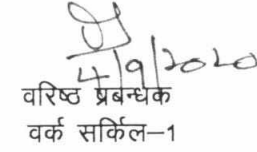 4/9/2020
वरिष्ठ प्रबन्धक
वर्क सर्किल-1